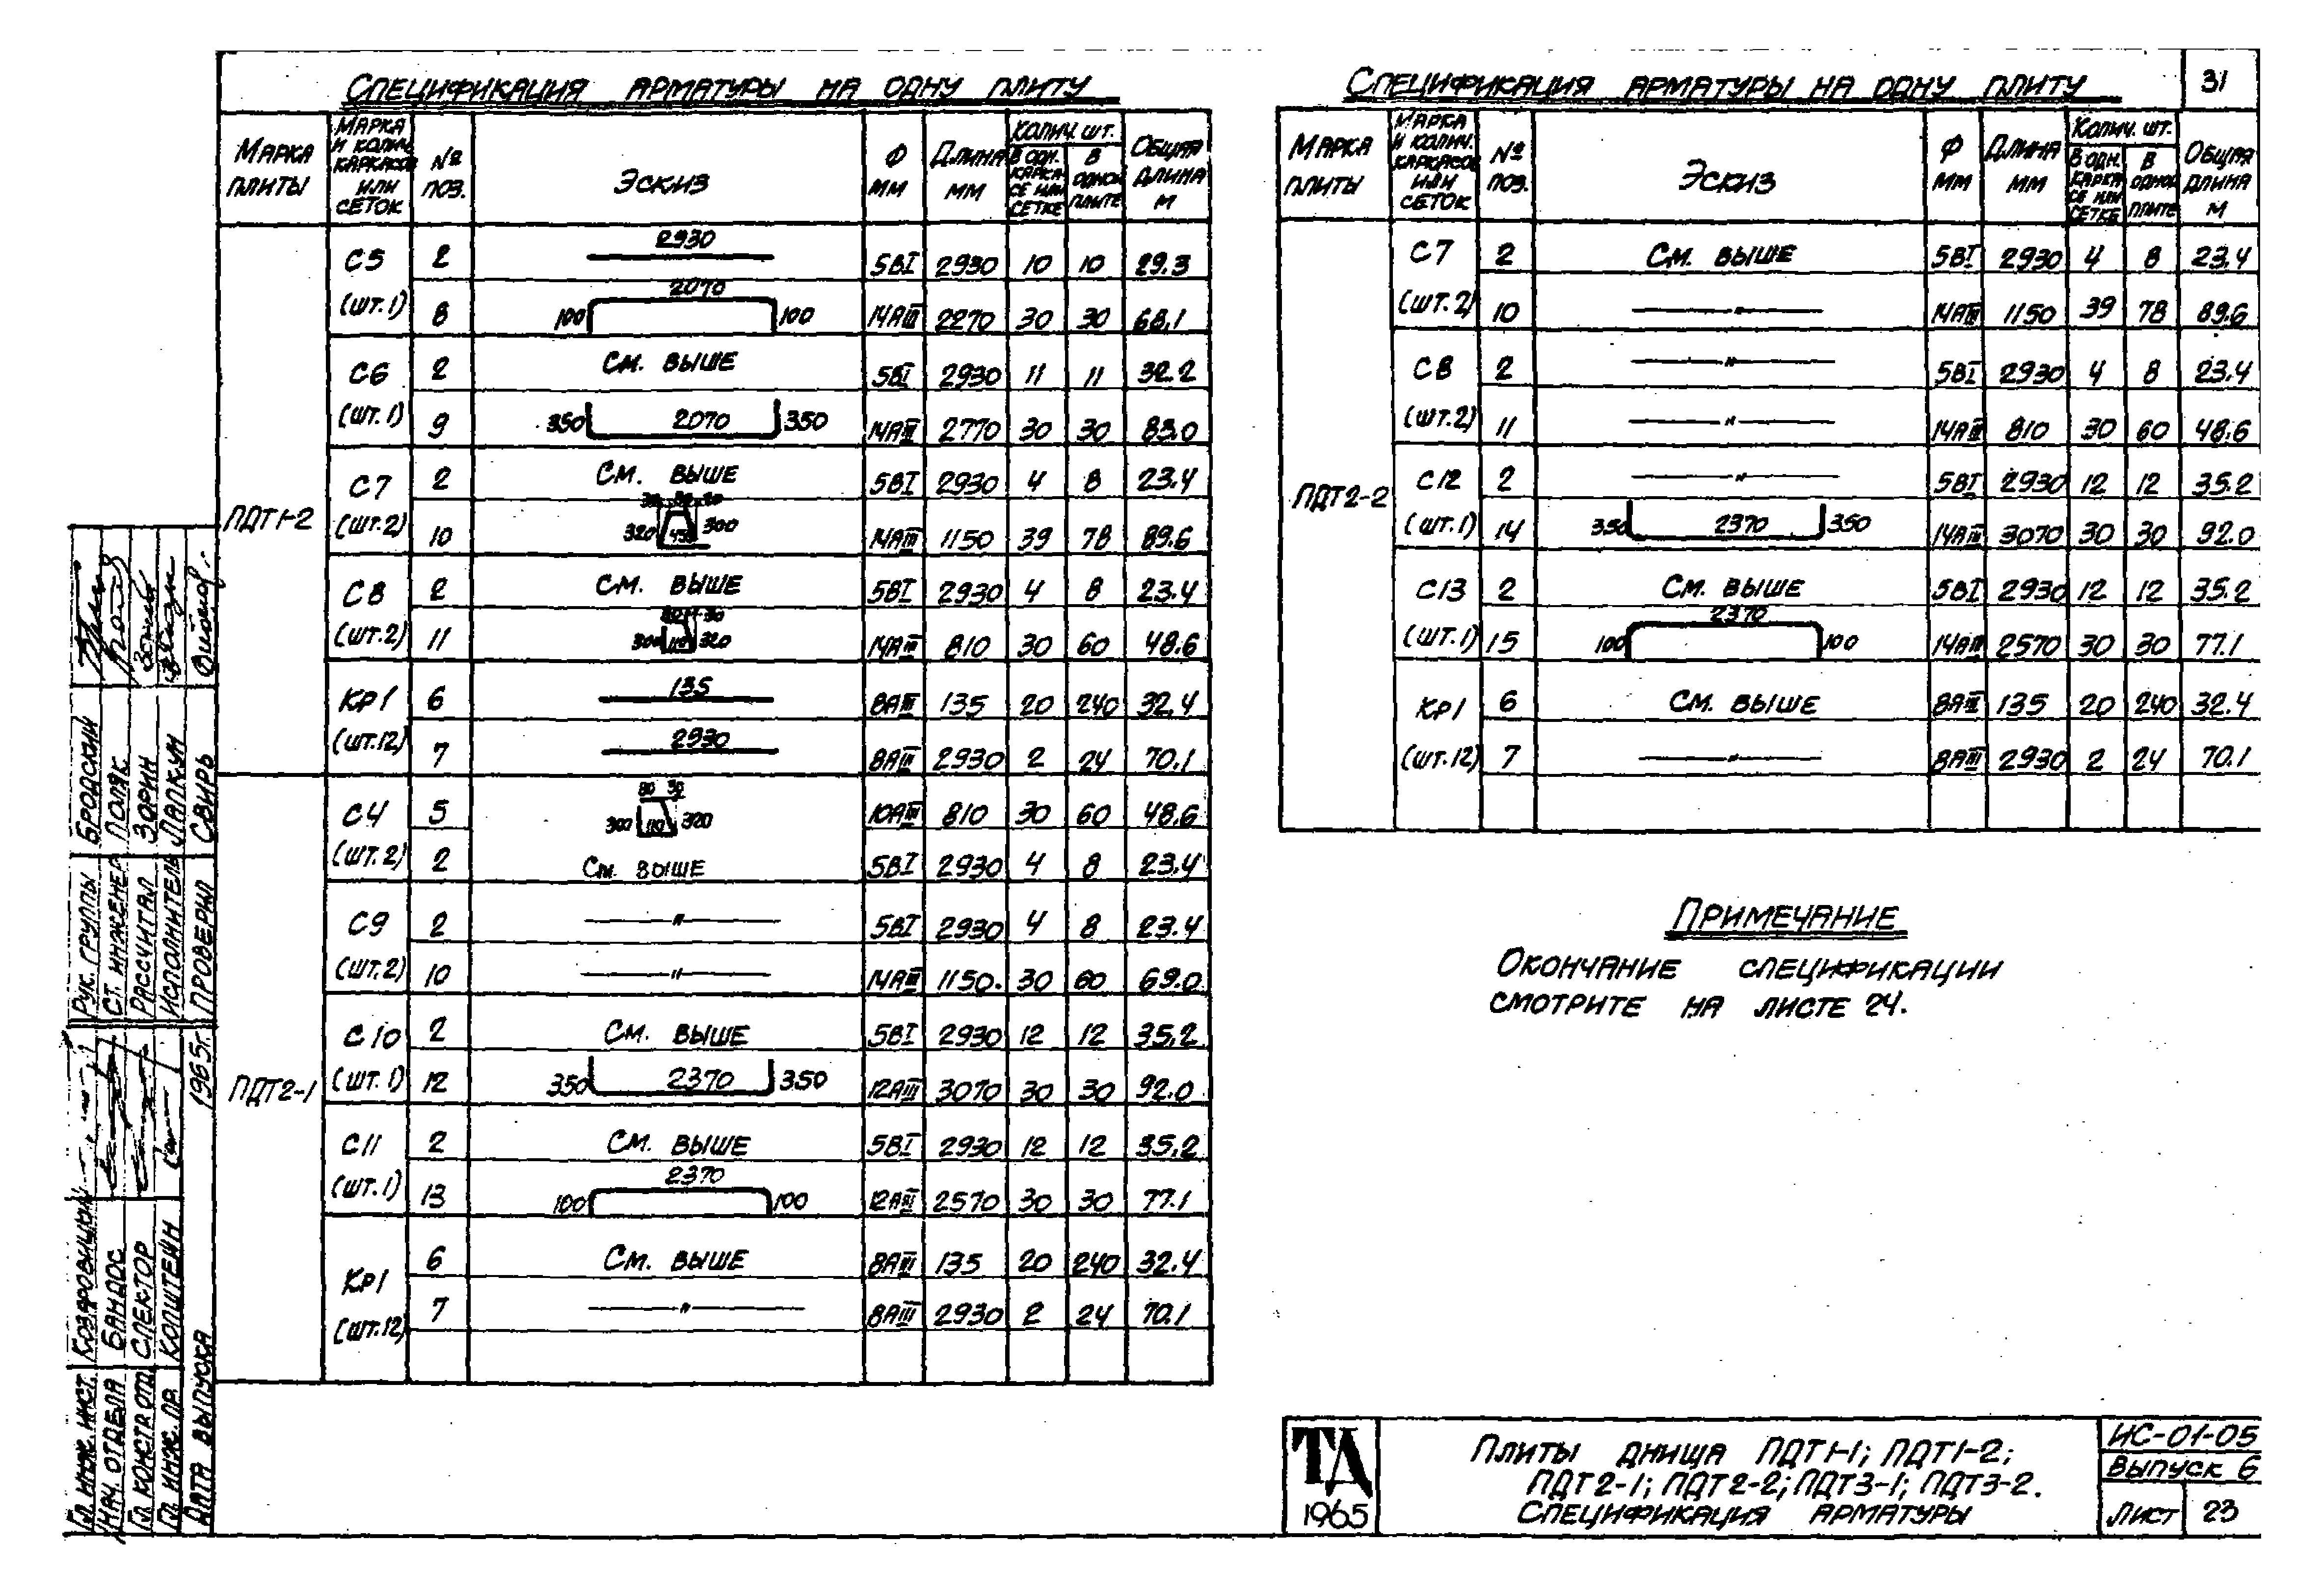 Спецификация арматуры на одну плиту
Марка плиты | Марка и колич. каркасов или сеток | № поз. | Эскиз | Ф мм | Длина мм | Колич. шт. | Общая длина м
В одн. каркасе или сетке | В одной плите
ПДТ1-2
С5 | 2 | 2930 | 5ВI | 2930 | 10 | 10 | 29.3
(шт.1) | 8 | 100 2070 100 | 14АIII | 2270 | 30 | 30 | 68.1
С6 | 2 | См. выше | 5ВI | 2930 | 11 | 11 | 32.2
(шт.1) | 9 | 350 2070 350 | 14АIII | 2770 | 30 | 30 | 83.0
С7 | 2 | См. выше | 5ВI | 2930 | 4 | 8 | 23.4
(шт.2) | 10 | 320 300 | 14АIII | 1150 | 39 | 78 | 89.6
С8 | 2 | См. выше | 5ВI | 2930 | 4 | 8 | 23.4
(шт.2) | 11 | 300 110 320 | 14АIII | 810 | 30 | 60 | 48.6
КР1 | 6 | 135 | 8АIII | 135 | 20 | 240 | 32.4
(шт.12) | 7 | 2930 | 8АIII | 2930 | 2 | 24 | 70.1
ПДТ2-1
С4 | 5 | 80 30 300 110 320 | 10АIII | 810 | 30 | 60 | 48.6
(шт.2) | 2 | См. выше | 5ВI | 2930 | 4 | 8 | 23.4
С9 | 2 | —"— | 5ВI | 2930 | 4 | 8 | 23.4
(шт.2) | 10 | —"— | 14АIII | 1150. | 30 | 60 | 69.0
С10 | 2 | См. выше | 5ВI | 2930 | 12 | 12 | 35.2
(шт.1) | 12 | 350 2370 350 | 12АIII | 3070 | 30 | 30 | 92.0
С11 | 2 | См. выше | 5ВI | 2930 | 12 | 12 | 35.2
(шт.1) | 13 | 100 2370 100 | 12АIII | 2570 | 30 | 30 | 77.1
КР1 | 6 | См. выше | 8АIII | 135 | 20 | 240 | 32.4
(шт.12) | 7 | —"— | 8АIII | 2930 | 2 | 24 | 70.1
Спецификация арматуры на одну плиту
31
Марка плиты | Марка и колич. каркасов или сеток | № поз. | Эскиз | Ф мм | Длина мм | Колич. шт. | Общая длина м
В одн. каркасе или сетке | В одной плите
ПДТ2-2
С7 | 2 | См. выше | 5ВI | 2930 | 4 | 8 | 23.4
(шт.2) | 10 | —"— | 14АIII | 1150 | 39 | 78 | 89.6
С8 | 2 | —"— | 5ВI | 2930 | 4 | 8 | 23.4
(шт.2) | 11 | —"— | 14АIII | 810 | 30 | 60 | 48.6
С12 | 2 | —"— | 5ВI | 2930 | 12 | 12 | 35.2
(шт.1) | 14 | 350 2370 350 | 14АIII | 3070 | 30 | 30 | 92.0
С13 | 2 | См. выше | 5ВI | 2930 | 12 | 12 | 35.2
(шт.1) | 15 | 100 2370 100 | 14АIII | 2570 | 30 | 30 | 77.1
КР1 | 6 | См. выше | 8АIII | 135 | 20 | 240 | 32.4
(шт.12) | 7 | —"— | 8АIII | 2930 | 2 | 24 | 70.1
Примечание
Окончание спецификации
смотрите на листе 24.
ТД
1965
Плиты днища ПДТ1-1; ПДТ1-2;
ПДТ2-1; ПДТ2-2; ПДТ3-1; ПДТ3-2.
Спецификация арматуры
ИС-01-05
Выпуск 6
Лист 23
Рук. группы Бродский
Ст. инженер Поляк
Рассчитал Зорин
Исполнитель Лапкун
Проверил Свирь
Гл. инж. инст.
Нач. отдела Бандос
Гл. констр. отд. Спектор
Гл. инж. пр. Копштейн
Дата выпуска 1965г.